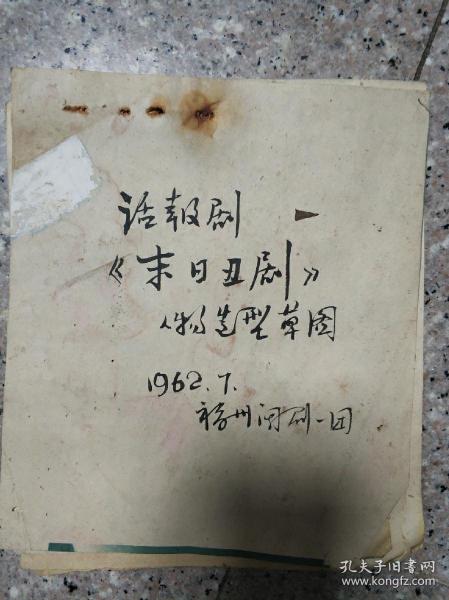 话报剧
《末日丑剧》
人物造型草图
1962.7.
福州闽剧一团
孔夫子旧书网
www.kongfz.com